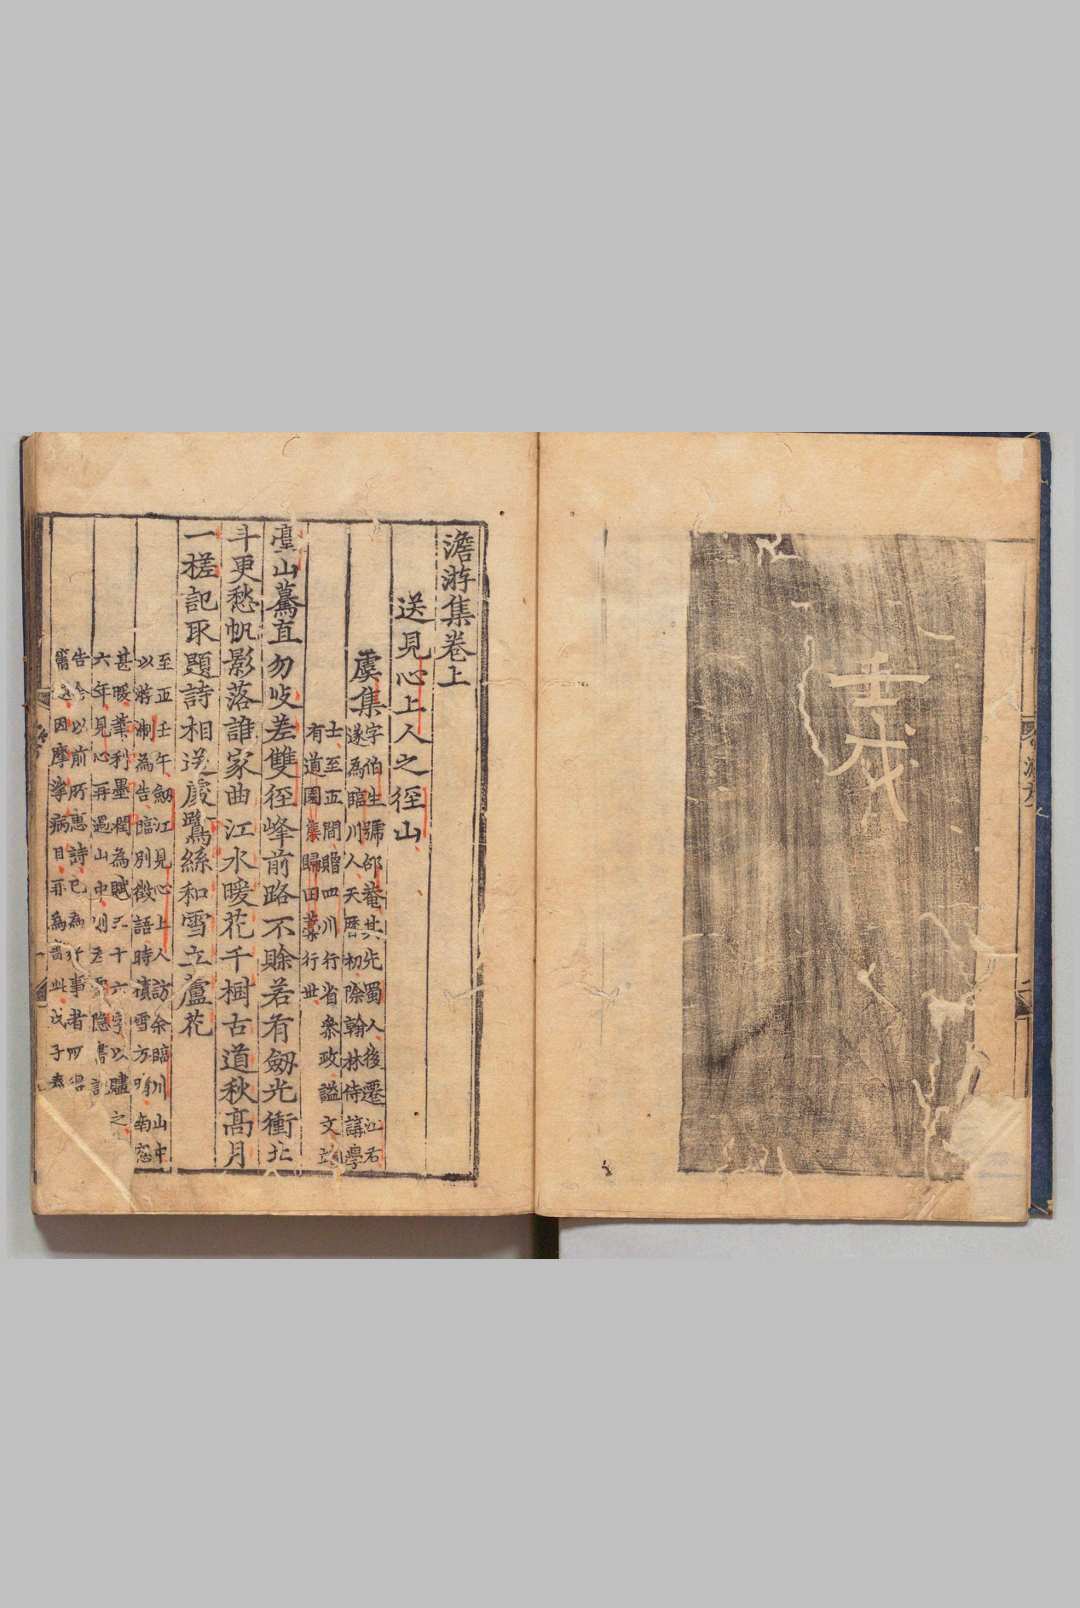 澹游集卷上
送見心上人之徑山
虞集
字伯生號邵菴其先蜀人後遷江右
遂為臨川人天曆初除翰林侍講學
士至正間贈四川行省參政謚文
有道園藁歸田藁行世
臺山驀直勿歧差雙徑峰前路不賒若有劔光衝北
斗更愁帆影落誰家曲江水暖花千樹古道秋高月
一槎記取題詩相送處鷺絲和雪立蘆花
至正壬午劔江見心上人訪余臨川山中
以浙為告臨別徵語時積雪方晴南窓
甚暖筆利墨潤為賦五十六字以贐之
六年見心再過山中
告余以前所惠詩已為好事者
因摩挲病目再為書此戊子春